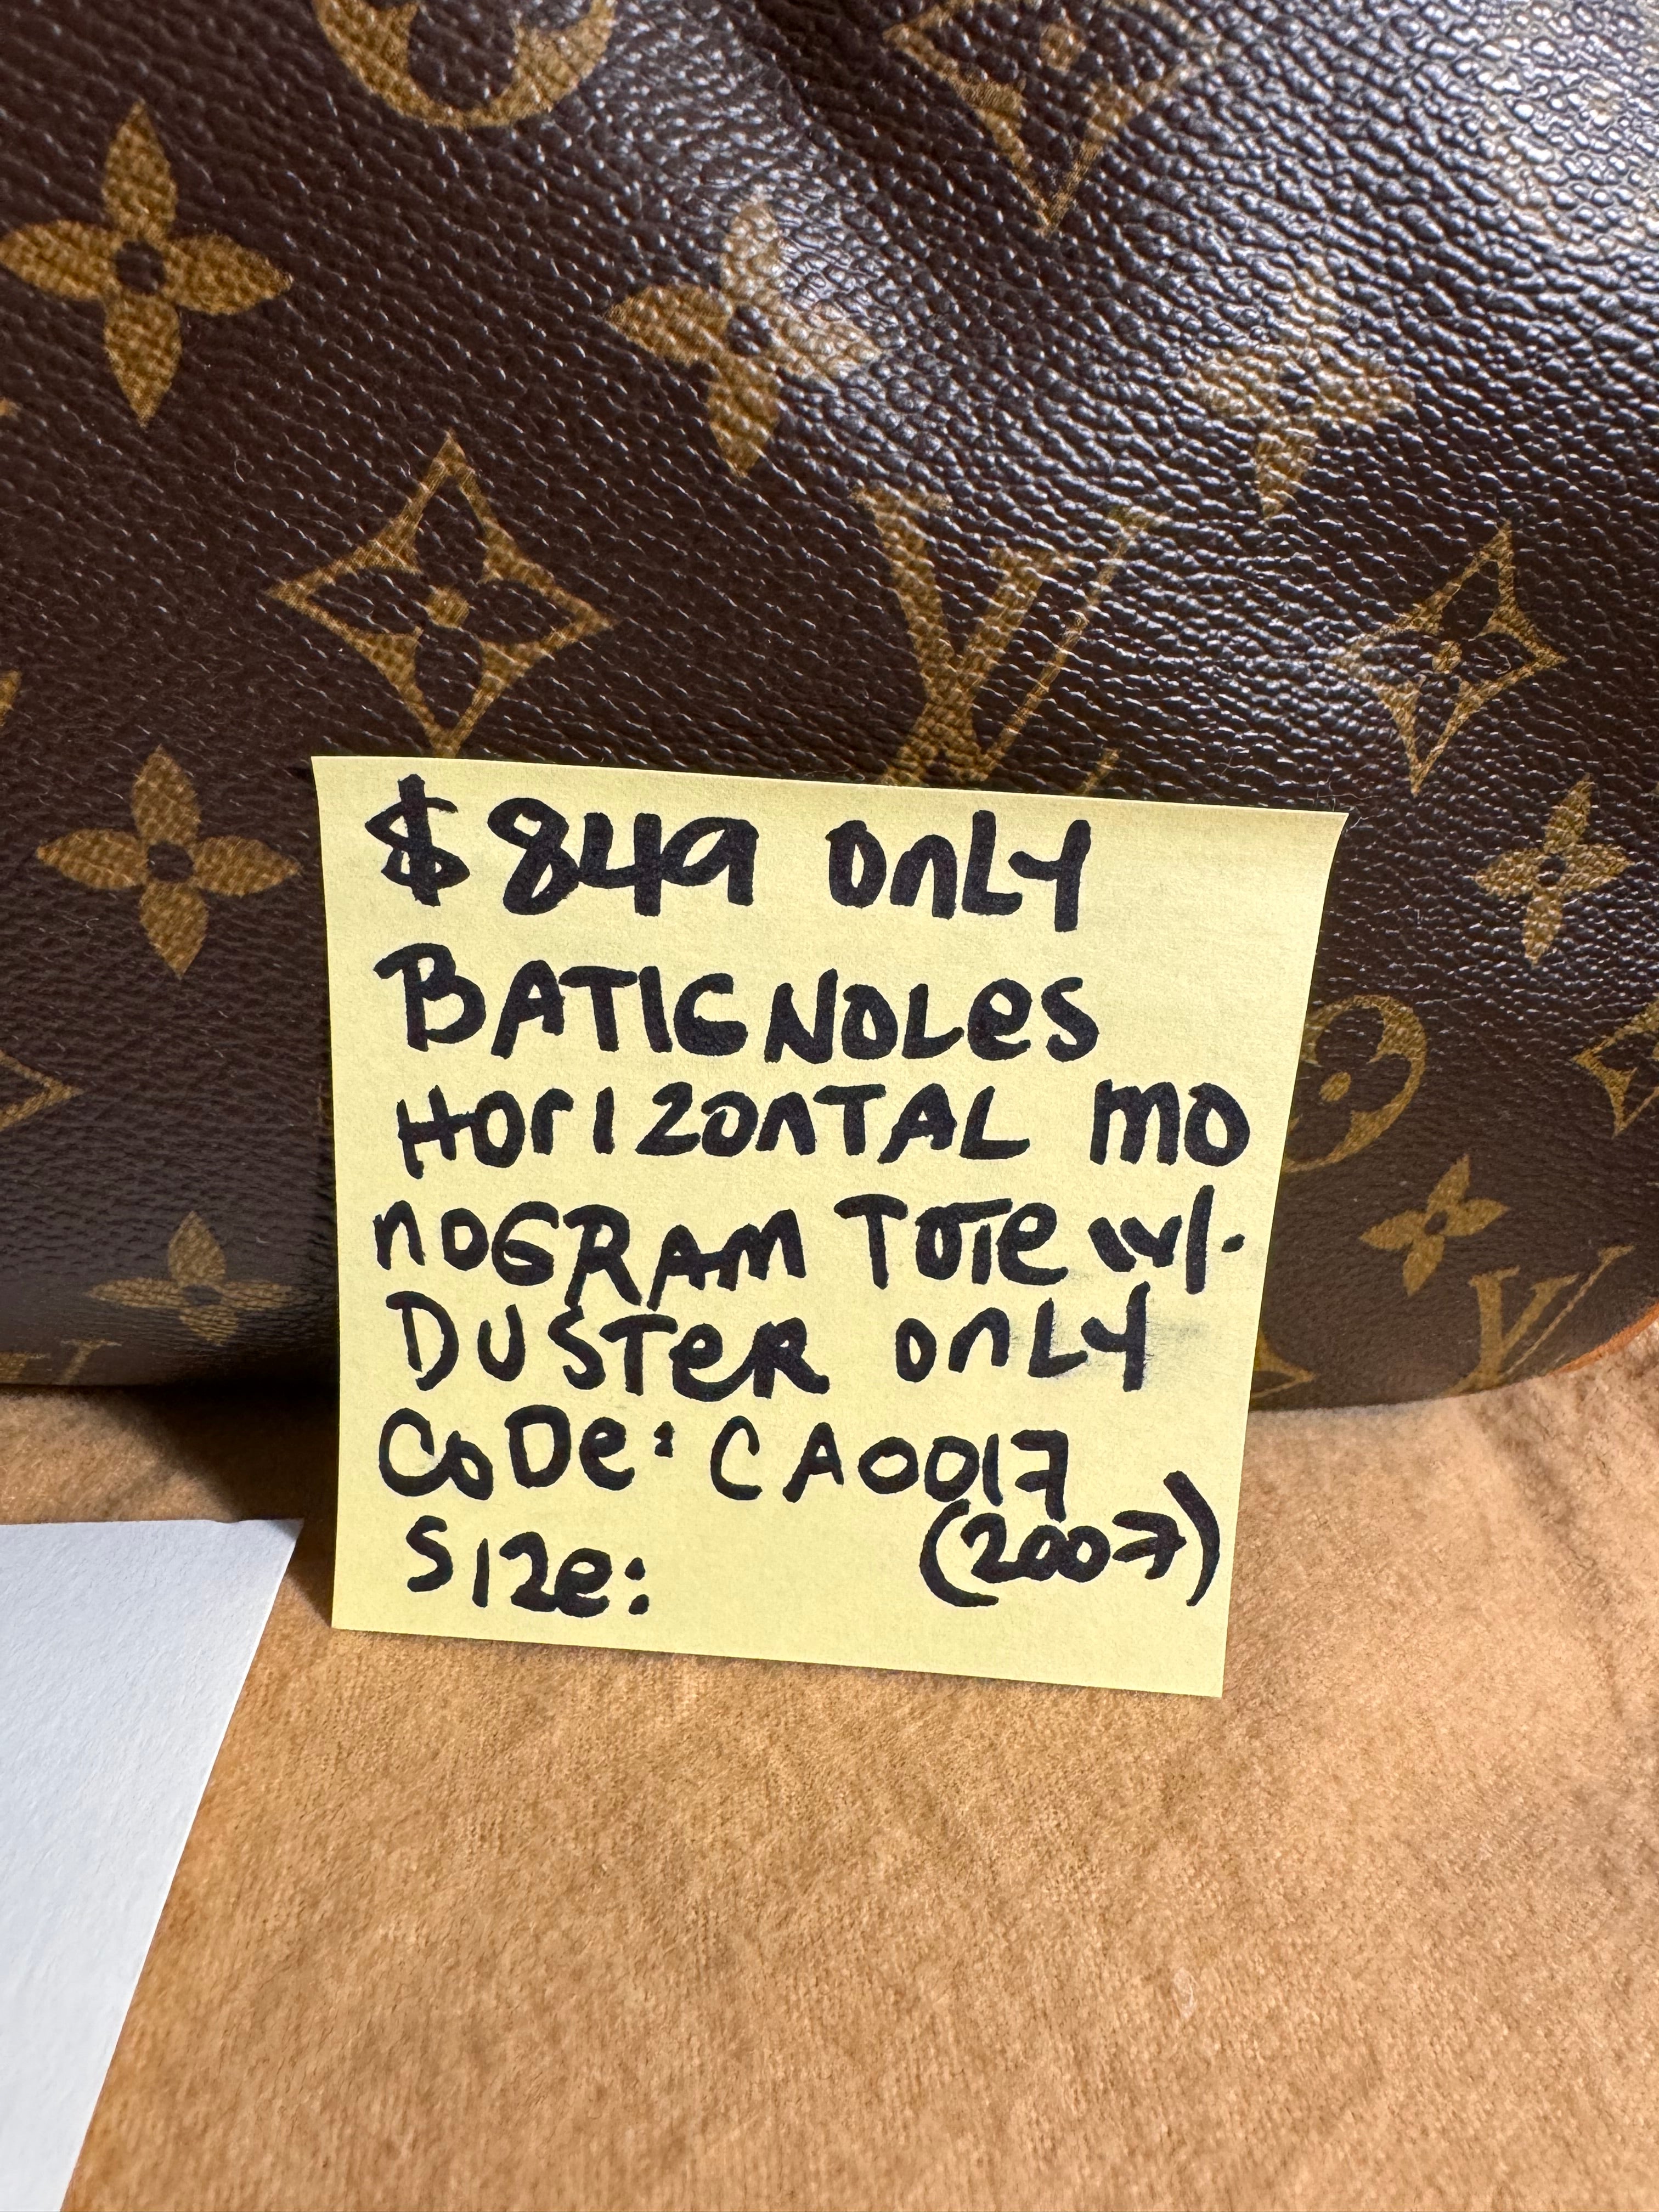 $849 only
BATIGNOLES
HORIZONTAL MO
NOGRAM TOTE W/.
DUSTER ONLY
CODE: CA0017
(2007)
SIZE: